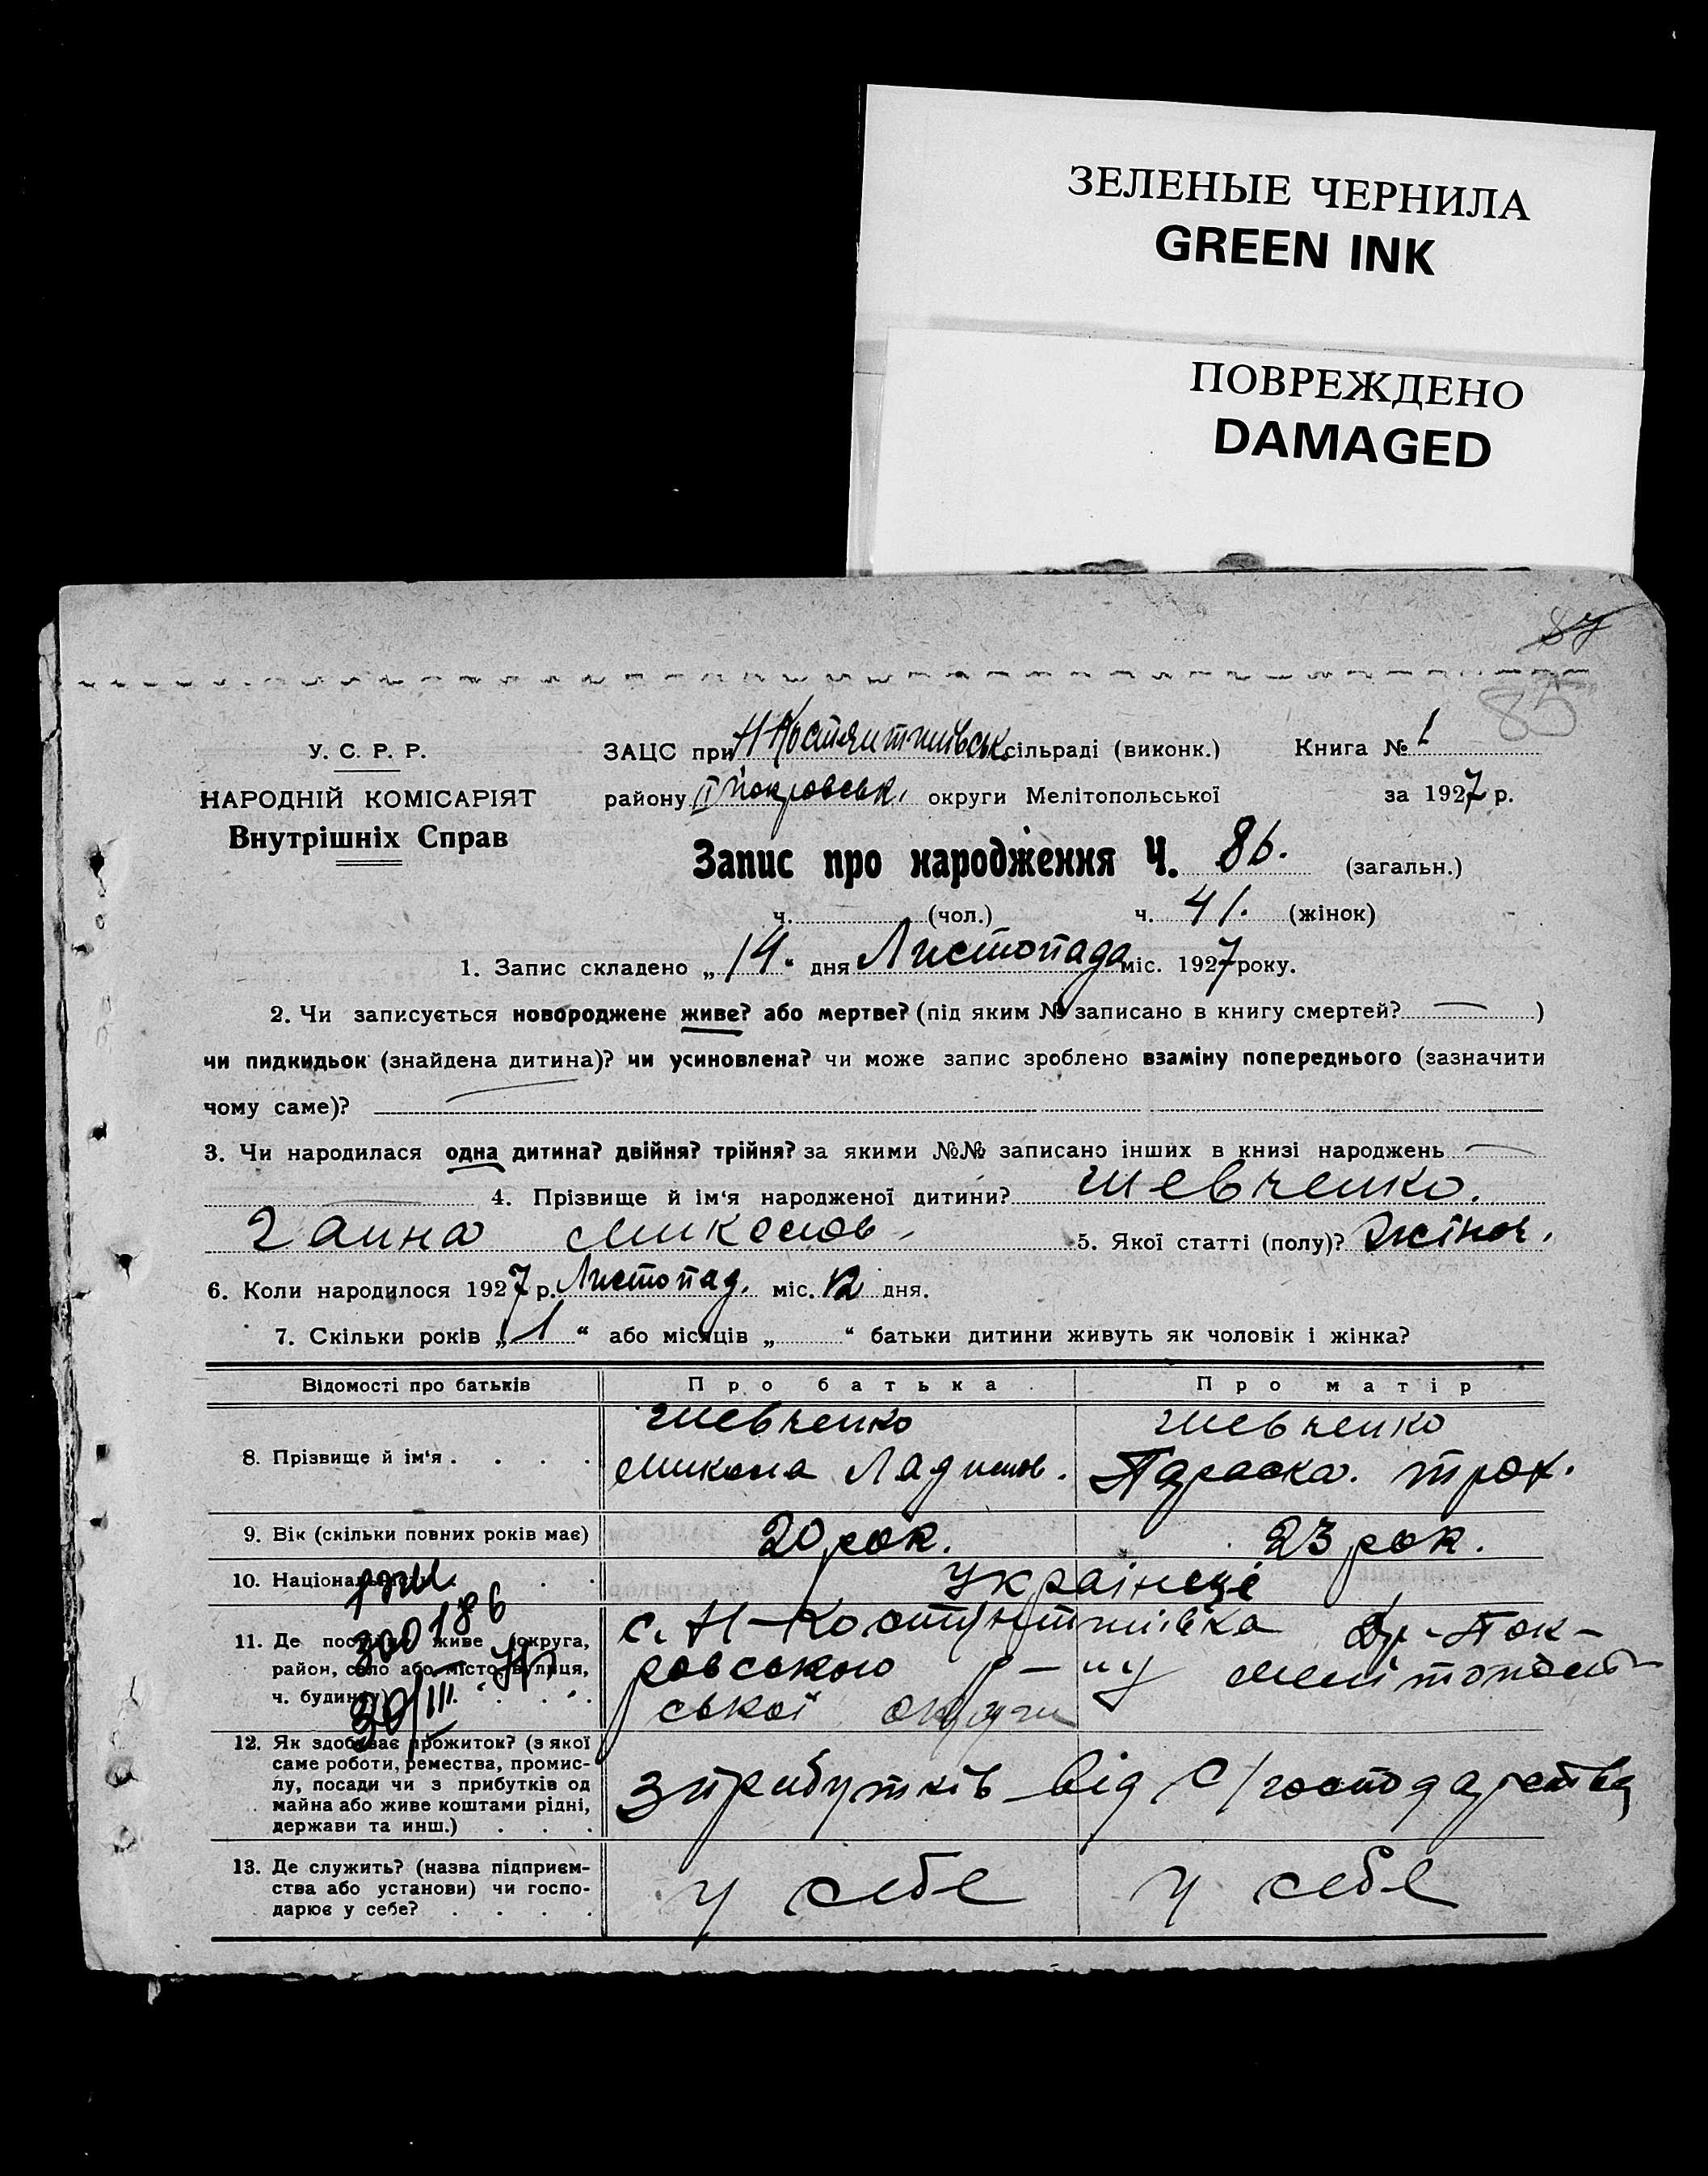 ЗЕЛЕНЫЕ ЧЕРНИЛА
GREEN INK
ПОВРЕЖДЕНО
DAMAGED
87
85
У. С. Р. Р.
НАРОДНІЙ КОМІСАРІЯТ
Внутрішніх Справ
ЗАЦС при сільраді (виконк.) Книга № 1
району І Покровськ. округи Мелітопольської за 1927 р.
Запис про народження Ч. 86. (загальн.)
ч. (чол.) ч. 41. (жінок)
1. Запис складено „14“ дня Листопада міс. 1927 року.
2. Чи записується новороджене живе? або мертве? (під яким № записано в книгу смертей? — )
чи пидкидьок (знайдена дитина)? чи усиновлена? чи може запис зроблено взаміну попереднього (зазначити
чому саме)?
3. Чи народилася одна дитина? двійня? трійня? за якими №№ записано інших в книзі народжень
4. Прізвище й ім‘я народженої дитини? Шевченко.
Ганна Миколов. 5. Якої статті (полу)? Жіноч.
6. Коли народилося 1927 р. Листопад. міс. 12 дня.
7. Скільки років „1“ або місяців „ “ батьки дитини живуть як чоловік і жінка?
Відомості про батьків Про батька Про матір
8. Прізвище й ім‘я . . . . Шевченко Шевченко
Микола Параска. Трох.
9. Вік (скільки повних років має) 20 рок. 23 рок.
10. Національність . . Українці
300186
30/III
11. Де постійно живе (округа, район, село або місто, вулиця, ч. будинку) . . . с. Н-Костянтинівка -Пок-
ровського р-ну Мелітополь-
ської округи
12. Як здобуває прожиток? (з якої
саме роботи, ремества, промис-
лу, посади чи з прибутків од
майна або живе коштами рідні,
держави та инш.) . . . з прибутків від с/господарства
13. Де служить? (назва підприєм-
ства або установи) чи госпо-
дарює у себе? . . . . у себе у себе